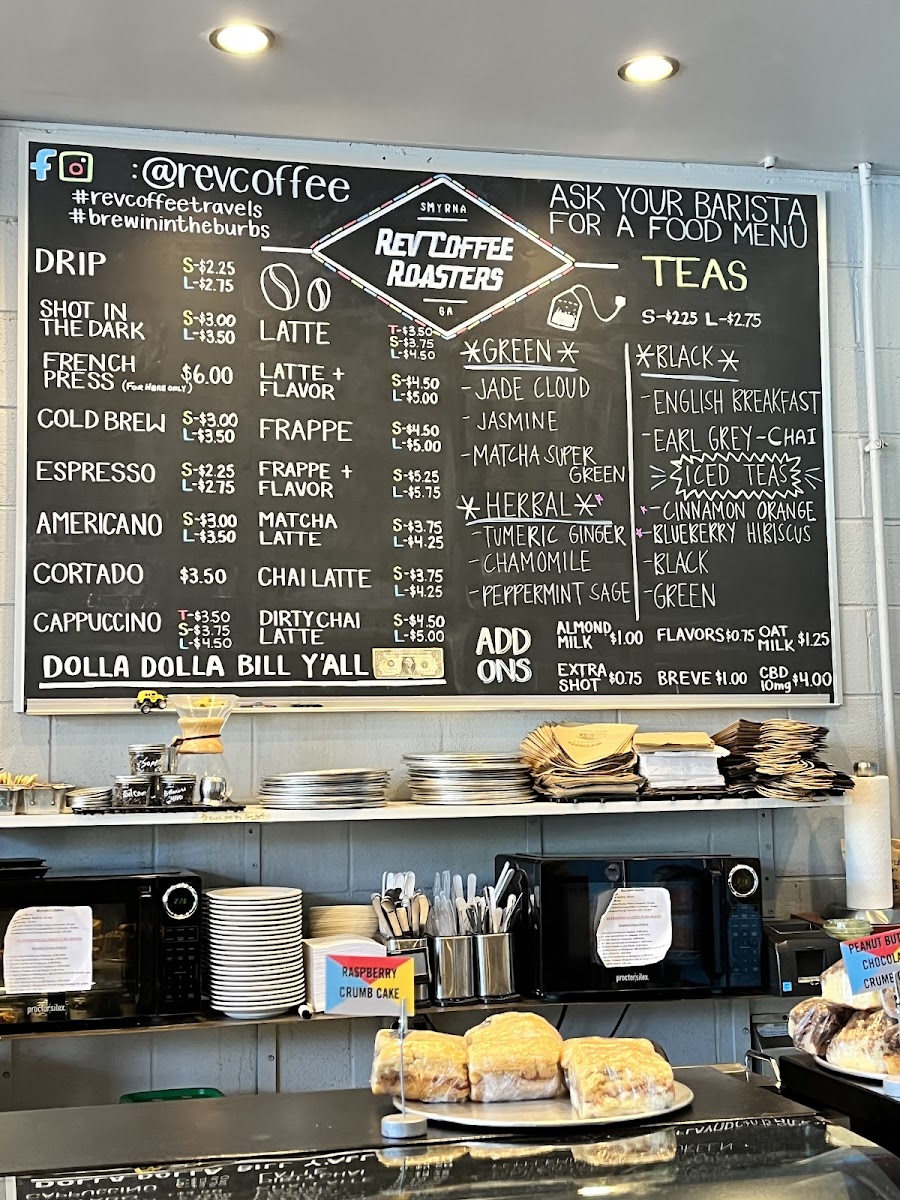 :@revcoffee
#revcoffeetravels
#brewinintheburbs
SMYRNA
REV COFFEE
ROASTERS
GA
ASK YOUR BARISTA
FOR A FOOD MENU
DRIP
S-$2.25
L-$2.75
SHOT IN
THE DARK
S-$3.00
L-$3.50
FRENCH
PRESS (FOR HERE ONLY)
$6.00
COLD BREW
S-$3.00
L-$3.50
ESPRESSO
S-$2.25
L-$2.75
AMERICANO
S-$3.00
L-$3.50
CORTADO
$3.50
CAPPUCCINO
T-$3.50
S-$3.75
L-$4.50
DOLLA DOLLA BILL Y'ALL
LATTE
T-$3.50
S-$3.75
L-$4.50
LATTE +
FLAVOR
S-$4.50
L-$5.00
FRAPPE
S-$4.50
L-$5.00
FRAPPE +
FLAVOR
S-$5.25
L-$5.75
MATCHA
LATTE
S-$3.75
L-$4.25
CHAI LATTE
S-$3.75
L-$4.25
DIRTY CHAI
LATTE
S-$4.50
L-$5.00
TEAS
S-$2.25 L-$2.75
*GREEN*
-JADE CLOUD
-JASMINE
-MATCHA SUPER
GREEN
*HERBAL*
-TUMERIC GINGER
-CHAMOMILE
-PEPPERMINT SAGE
*BLACK*
-ENGLISH BREAKFAST
-EARL GREY-CHAI
ICED TEAS
-CINNAMON ORANGE
-BLUEBERRY HIBISCUS
-BLACK
-GREEN
ADD
ONS
ALMOND
MILK $1.00
FLAVORS $0.75
OAT
MILK $1.25
EXTRA
SHOT $0.75
BREVE $1.00
CBD
10mg $4.00
proctor silex
proctor silex
RASPBERRY
CRUMB CAKE
PEANUT BUT
CHOCOLA
CRUME